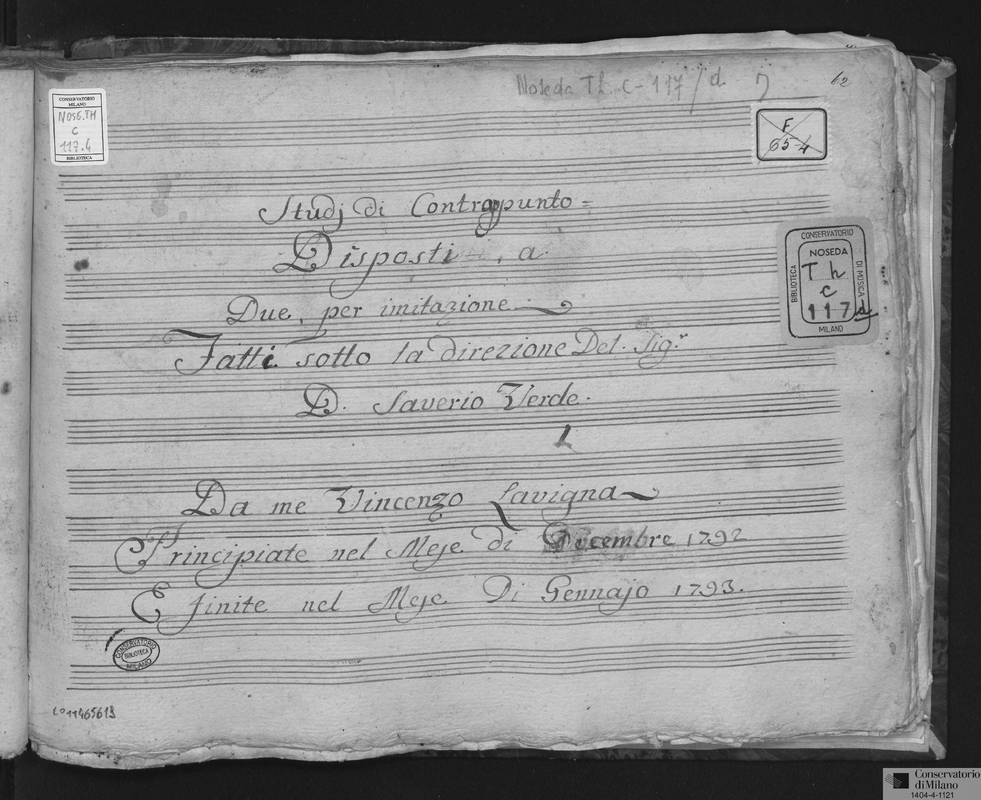 Noseda Th. c-117/d
62
CONSERVATORIO
MILANO
NOSE.TH
C
117.4
BIBLIOTECA
F
65-4
Studj di Contrappunto =
Disposti, a
Due, per imitazione
Fatti sotto la direzione Del. Sig.r
D. Saverio Verde.
CONSERVATORIO
BIBLIOTECA
DI MUSICA
NOSEDA
Th
c
117d
MILANO
1
Da me Vincenzo Lavigna
Principiate nel Mese di Decembre 1792
E finite nel Mese Di Gennajo 1793.
CONSERVATORIO
BIBLIOTECA
MILANO
Lo11465613
Conservatorio
di Milano
1404-4-1121